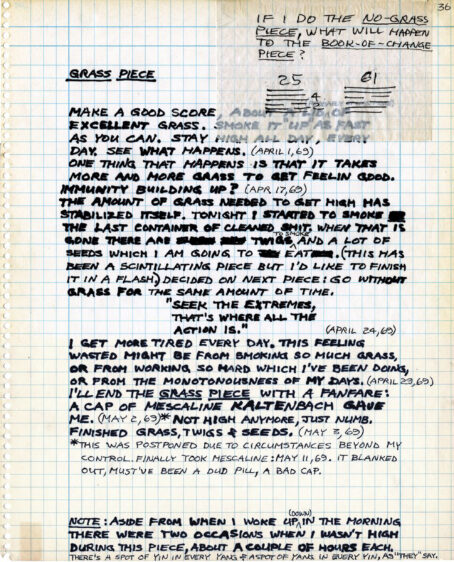 36
IF I DO THE NO-GRASS
PIECE, WHAT WILL HAPPEN
TO THE BOOK-OF-CHANGE
PIECE?
25 61
4
GRASS PIECE
MAKE A GOOD SCORE, ABOUT A LID, OF
EXCELLENT GRASS. SMOKE IT UP AS FAST
AS YOU CAN. STAY HIGH ALL DAY, EVERY
DAY. SEE WHAT HAPPENS. (APRIL 1, 69)
ONE THING THAT HAPPENS IS THAT IT TAKES
MORE AND MORE GRASS TO GET FEELIN GOOD.
IMMUNITY BUILDING UP? (APR 17, 69)
THE AMOUNT OF GRASS NEEDED TO GET HIGH HAS
STABILIZED ITSELF. TONIGHT I STARTED TO SMOKE
THE LAST CONTAINER OF CLEANED SHIT. WHEN THAT IS
TO SMOKE
GONE THERE ARE TWIGS, AND A LOT OF
SEEDS WHICH I AM GOING TO EAT. (THIS HAS
BEEN A SCINTILLATING PIECE BUT I'D LIKE TO FINISH
IT IN A FLASH) DECIDED ON NEXT PIECE: GO WITHOUT
GRASS FOR THE SAME AMOUNT OF TIME.
"SEEK THE EXTREMES,
THAT'S WHERE ALL THE
ACTION IS."
(APRIL 24, 69)
I GET MORE TIRED EVERY DAY. THIS FEELING
WASTED MIGHT BE FROM SMOKING SO MUCH GRASS,
OR FROM WORKING SO HARD WHICH I'VE BEEN DOING,
OR FROM THE MONOTONOUSNESS OF MY DAYS. (APRIL 29, 69)
I'LL END THE GRASS PIECE WITH A FANFARE:
A CAP OF MESCALINE KALTENBACH GAVE
ME. (MAY 2, 69)* NOT HIGH ANYMORE, JUST NUMB.
FINISHED GRASS, TWIGS & SEEDS. (MAY 3, 69)
*THIS WAS POSTPONED DUE TO CIRCUMSTANCES BEYOND MY
CONTROL. FINALLY TOOK MESCALINE: MAY 11, 69. IT BLANKED
OUT, MUST'VE BEEN A DUD PILL, A BAD CAP.
(DOWN)
NOTE: ASIDE FROM WHEN I WOKE UP, IN THE MORNING
THERE WERE TWO OCCASIONS WHEN I WASN'T HIGH
DURING THIS PIECE, ABOUT A COUPLE OF HOURS EACH.
THERE'S A SPOT OF YIN IN EVERY YANG & A SPOT OF YANG IN EVERY YIN, AS "THEY" SAY.